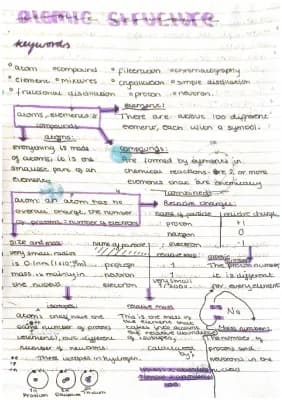 atomic structure
keywords
atom compound filtration chromatography
element mixtures crystallisation simple distillation
fractional distillation proton neutron
atoms, elements & compounds
element:
There are about 100 different
element, each with a symbol.
atoms:
everything is made
of atoms, it is the
smallest part of an
element
compounds:
are formed by elements in
chemical reactions. 2 or more
elements that are chemically
combined
atom: an atom has no
overall charge. the number
of protons = number of electrons
Relative charge:
name of particle relative charge
proton +1
neutron 0
electron -
size and mass
very small radius
0.1nm (1x10⁻¹⁰m)
mass is mainly in
the nucleus
name of particle relative mass
proton 1
neutron 1
electron very small
The proton number
it is different
for every element
isotopes
atoms they have the
same number of protons
but different
number of neutrons.
Three isotopes in hydrogen.
relative mass
This is the mass of
the element that
takes into account
the relative abundance
of isotopes,
calculated
by:
Na
Mass number:
The number of
protons and
neutrons in the
nucleus
Protium Deuterium Tritium